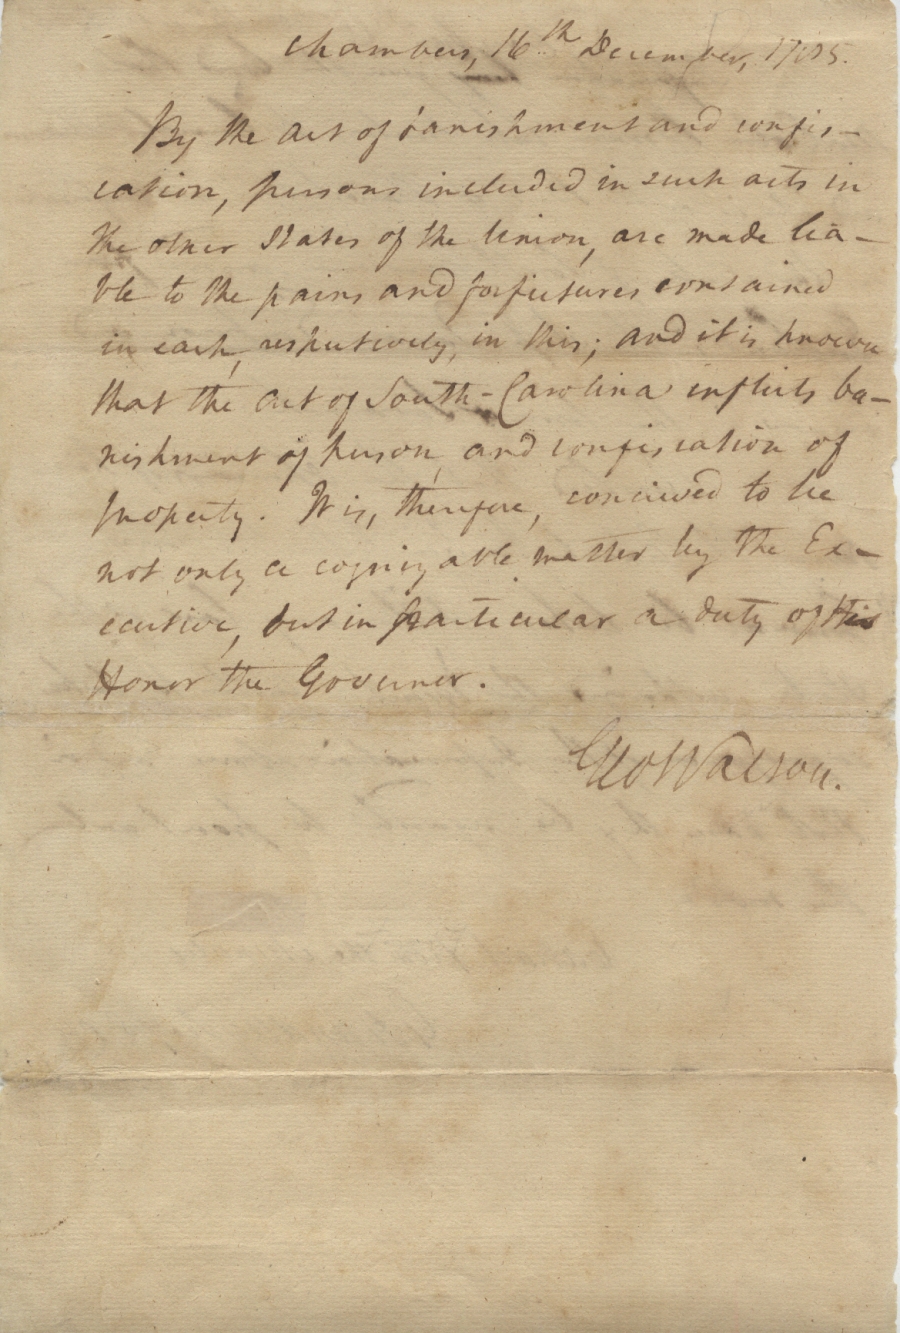 Chambers, 16th December, 1785.
By the Act of banishment and confis-
cation, persons included in such acts in
the other States of the Union, are made lia-
ble to the pains and forfeitures contained
in each, respectively, in this; and it is known
that the Act of South-Carolina inflicts ba-
nishment of person, and confiscation of
property. It is, therefore, conceived to be
not only a cognizable matter by the Ex-
ecutive, but in particular a duty of His
Honor the Governor.
Geo Walton.